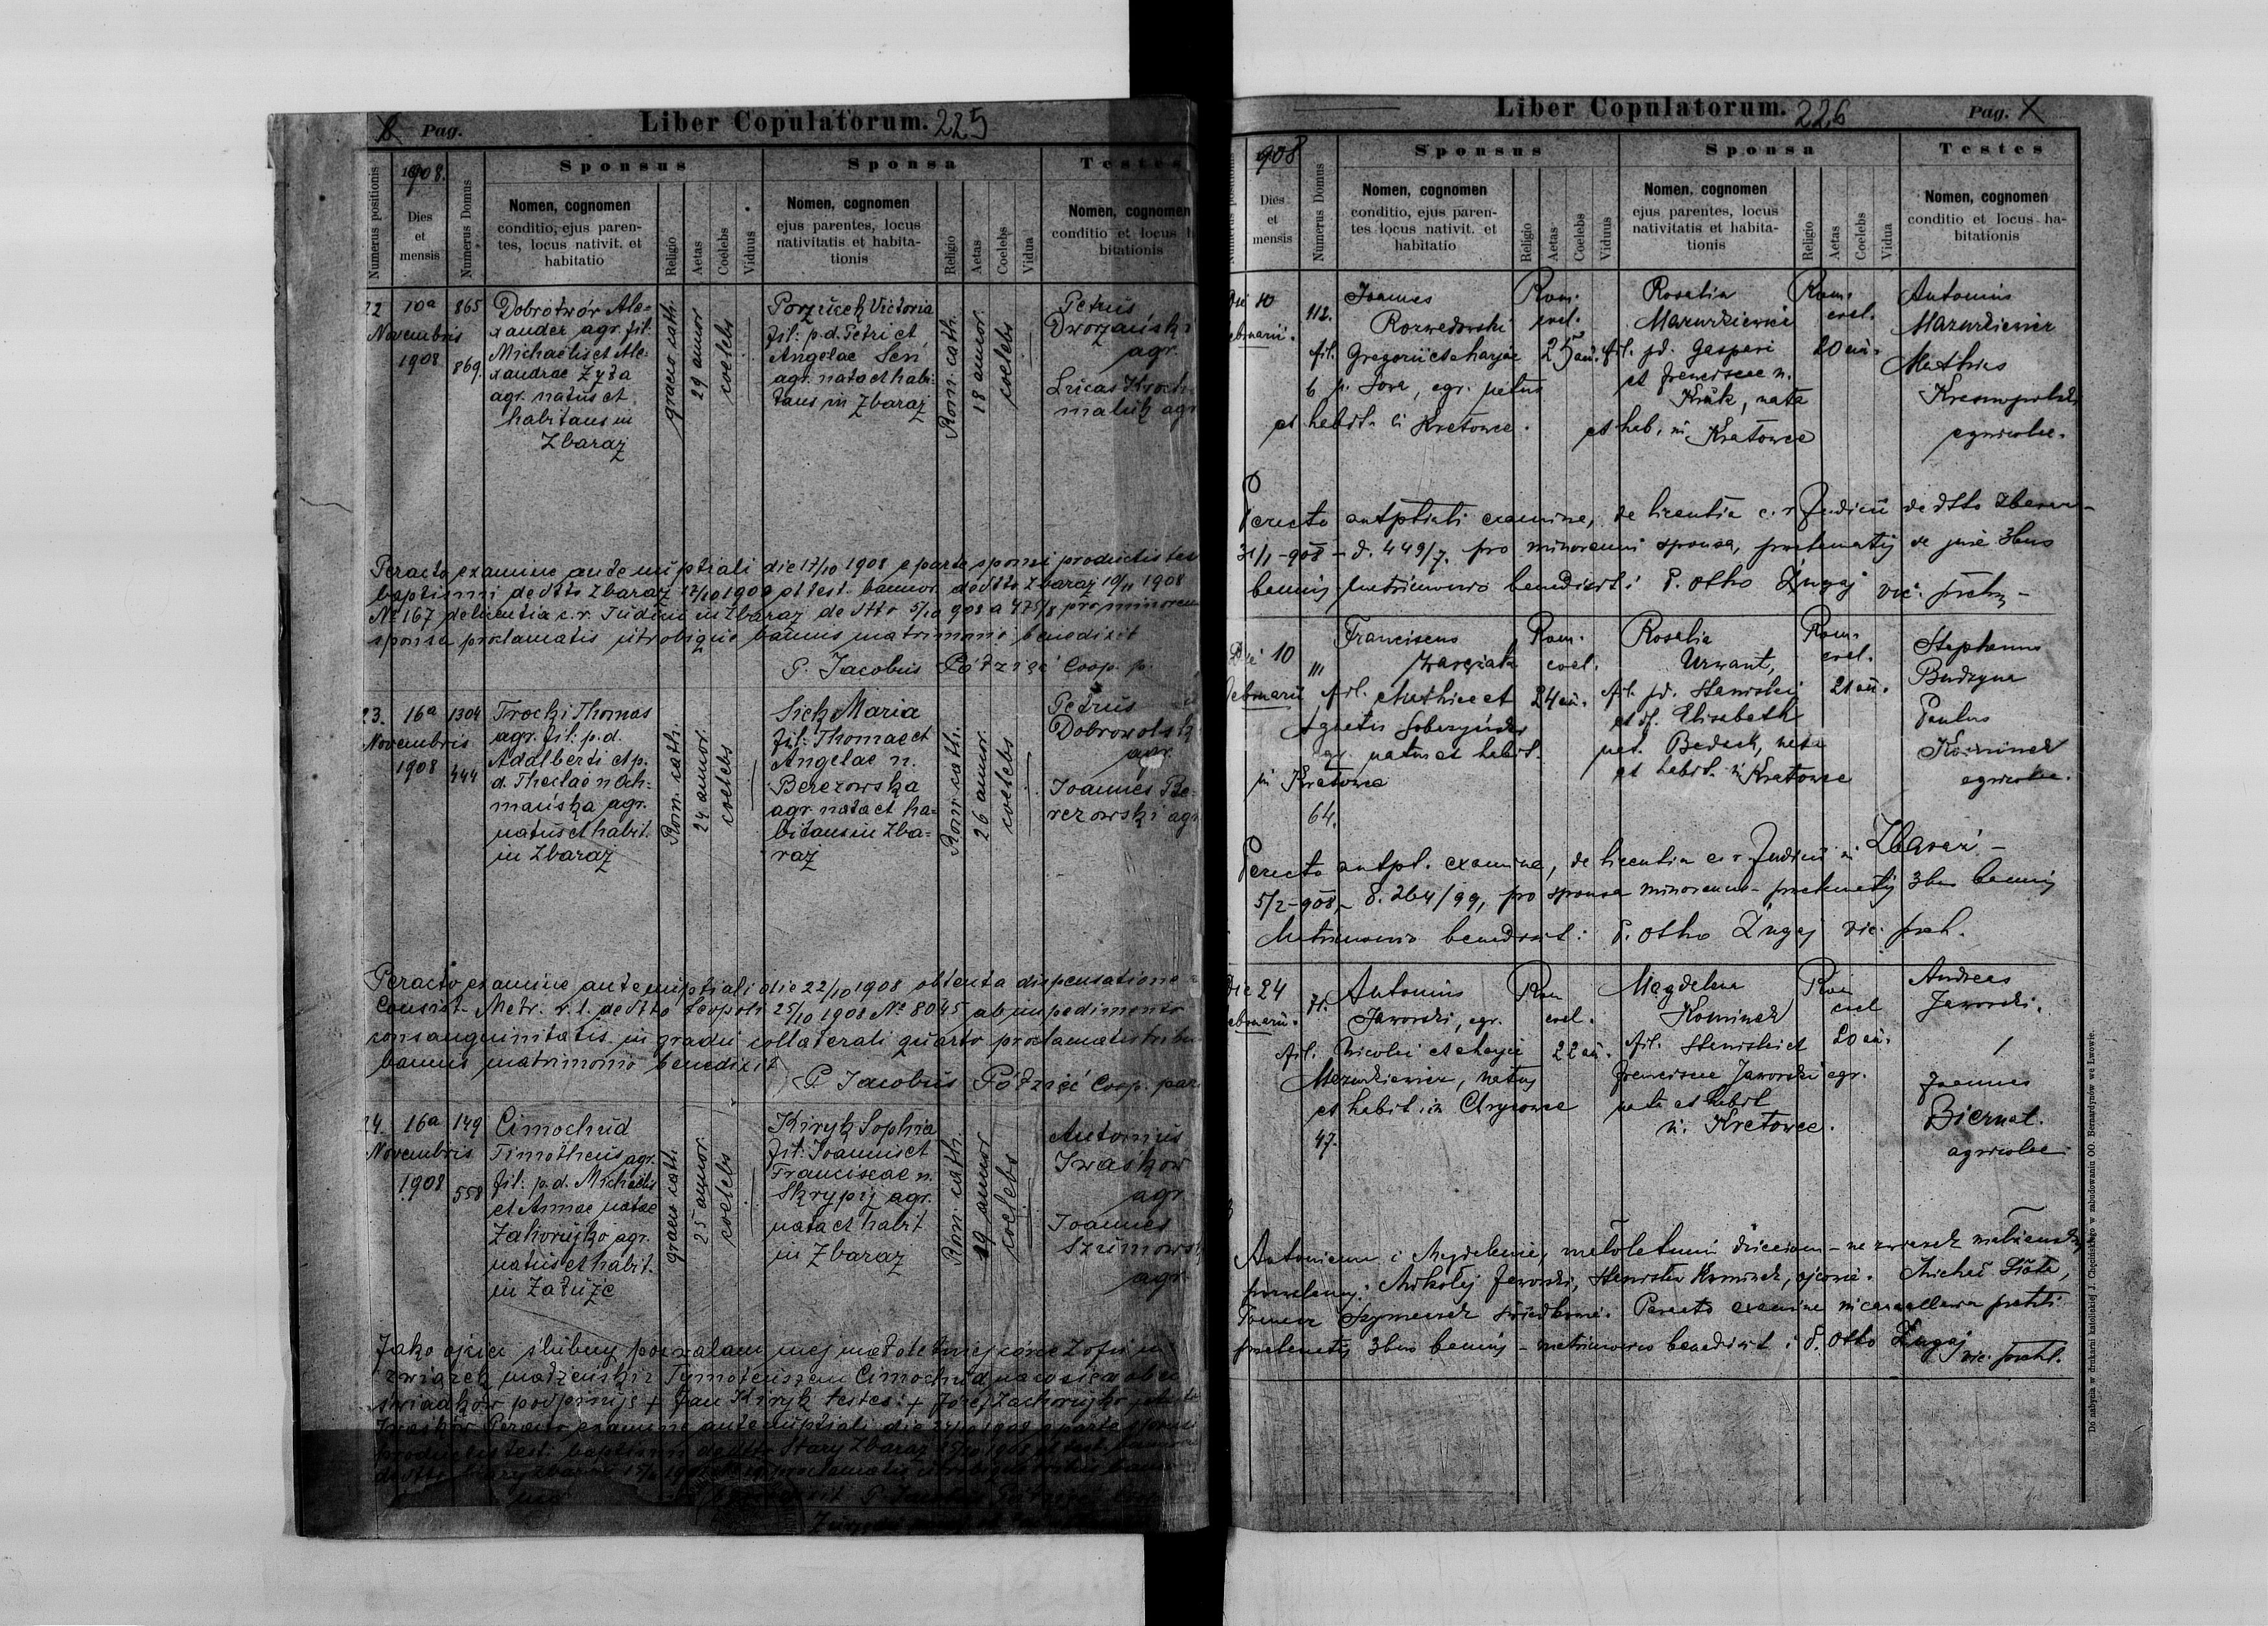 Pag.
Liber Copulatorum. 225
Numerus positionis
1908.
Dies
et
mensis
Numerus Domus
Sponsus
Nomen, cognomen
conditio, ejus paren-
tes, locus nativit. et
habitatio
Religio
Aetas
Coelebs
Viduus
Sponsa
Nomen, cognomen
ejus parentes, locus
nativitatis et habita-
tionis
Religio
Aetas
Coelebs
Vidua
Testes
Nomen, cognomen
conditio et locus h
bitationis
22
10a
Novembris
1908
865
869.
Dobrotwór Ale-
xander agr. fil.
Michaelis et Ale-
xandrae Zyła
agr. natus et
habitans in
Zbaraż
graeco cath.
29 annor
coelebs
Porzucek Victoria
fil: p.d. Petri et
Angelae Seń
agr. nata et habi-
tans in Zbaraż
Rom. cath.
18 annor.
coelebs
Petrus
Dworzański
agr.
Lucas Kroch
maluk agr
Peracto examine ante nuptiali die 17/10 1908 e parte sponsi productis test
baptismi de dtto Zbaraż 17/10 1908 et test. bannor. de dtto Zbaraż 10/11 1908
No 167 de licentia c.r. Judicii in Zbaraż de dtto 5/10 908 a 475/8 pro minorenni
sponsa proklamatis utrobique bannis matrimonio benedixit
P. Jacobus Półzięć Coop. p.
23.
16a
Novembris
1908
1304
444
Trocki Thomas
agr. fil: p.d.
Adalberti et p.
d. Theclae n. Och-
mańska agr.
natus et habit.
in Zbaraż
Rom. cath.
24 annor.
coelebs
Sick Maria
fil: Thomae et
Angelae n.
Berezowska
agr. nata et ha-
bitans in Zba-
raż
Rom. cath.
26 annor.
coelebs
Petrus
Dobrowolsk
agr.
Joannes Be-
rezowski agr
Peracto examine ante nuptiali die 22/10 1908 obtenta dispensatione
Consist. Metr. r. l. de dtto Leopoli 25/10 1908 No 8045 ab impedimento
consanguinitatis in gradu collaterali quarto proklamatis tribus
bannis matrimonio benedixit
P. Jacobus Półzięć Coop. par
24.
16a
Novembris
1908
149
558
Cimochud
Timotheus agr.
fil: p.d. Michaelis
et Annae natae
Zahorujko agr.
natus et habit.
in Załuże
graeco cath.
25 annor.
coelebs
Kiryk Sophia
fil: Joannis et
Franciscae n.
Skrypij agr.
nata et habit
in Zbaraż
Rom. cath.
19 annor
coelebs
Antonius
Iwaśkow
agr
Joannes
Szumowsk
agr.
Jako ojciec ślubny pozwalam mej małoletniej córce Zofii
związek małżeński z Tymoteuszem Cimochud
świadków podpisuję + Jan Kiryk testes: + Józef Zachorujko
Iwaśków Peracto examine ante nuptiali die
Liber Copulatorum. 226
Pag.
908
Dies
et
mensis
Numerus Domus
Sponsus
Nomen, cognomen
conditio, ejus paren-
tes locus nativit. et
habitatio
Religio
Aetas
Coelebs
Viduus
Sponsa
Nomen, cognomen
ejus parentes, locus
nativitatis et habita-
tionis
Religio
Aetas
Coelebs
Vidua
Testes
Nomen, cognomen
conditio et locus ha-
bitationis
Die 10
ebruarii.
112.
6
Joannes
Rozwadowski
fil. Gregorii et Mariae
agr. natus
et habit. in Kretowce.
Rom.
coel.
25 an.
Rosalia
Mazurkiewicz
fil. pd. Gaspari
et Franciscae n.
Kruk, nata
et hab. in Kretowce
Rom.
coel.
20 an.
Antonius
Mazurkiewicz
Mathias
Krasnopolski
agricolae.
Peracto antptiali examine, de licentia c. r Judicii de dtto Zbaraż
31/1-908 - d. 449/7. pro minorenni sponsa, proclamatis de jure 3bus
bannis matrimonio benedixit: P. Otto Żugaj vic.
Die 10
Februarii
111
64.
Franciscus
fil. Mathiae et
Agnetis
agr. natus et habit.
in Kretowce
Rom.
coel.
24 an.
Rosalia
Urwant,
fil. pd. Stanislai
et df. Elisabeth
nat. Bednek, nata
et habit. in Kretowce
Rom.
coel.
21 an.
Stephanus
Budzyna
Paulus
Kominek
agricolae.
Peracto antpt. examine, de licentia c. r Judicii in Zbaraż -
5/2-908 - 264/99, pro sponsa minorenni - proclamatis 3bus bannis
Matrimonio benedixit: P. Otto Żugaj vic.
Die 24
ebruarii.
71.
47.
Antonius
Jaworski, agr.
fil. Nicolai et Mariae
Mazurkiewicz, natus
et habit. in Chrycowce
Rom
coel.
22 an.
Magdalena
Kominek
fil. Stanislai et
Franciscae Jaworski agr.
nata et habit
in Kretowce.
Rom
coel
20 an.
Andreas
Jaworski.
Joannes
Biernat.
agricolae
Antoniemu i Magdalenie, małoletnim dzieciom - na związek małżeński
pozwalamy: Mikołaj Jaworski, Stanisław Kominek, ojcowie. Michał
Tomasz Szymczak świadkowie. Peracto examine
proclamatis 3bus bannis - matrimonio benedixit: P. Otto Żugaj vic.
Do nabycia w drukarni katolickiej J. Chęcińskiego w zabudowaniu OO. Bernardynów we Lwowie.